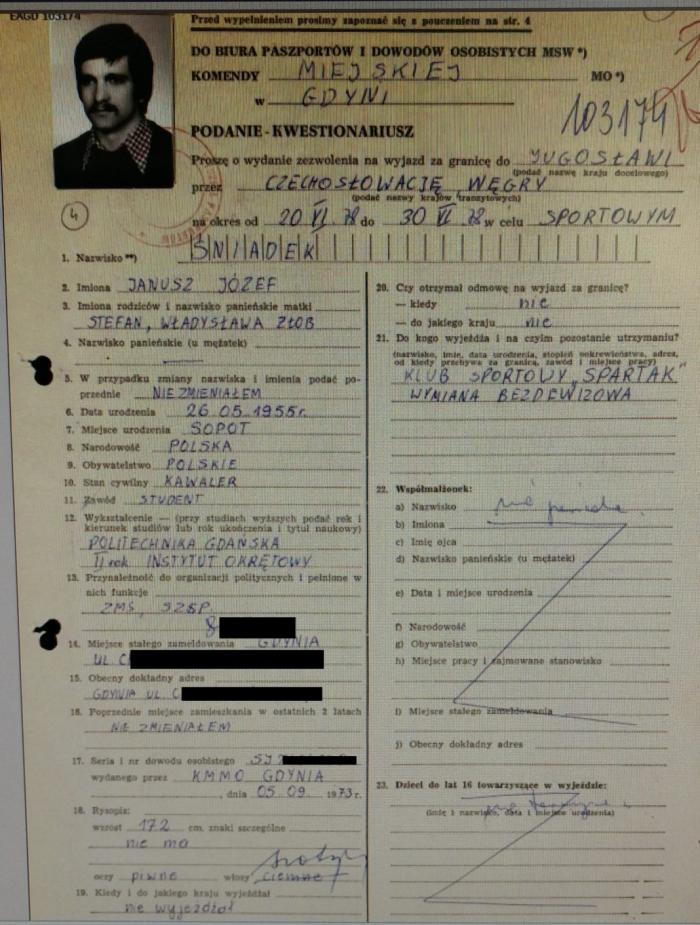 EAGD 103174
Przed wypełnieniem prosimy zapoznać się z pouczeniem na str. 4
DO BIURA PASZPORTÓW I DOWODÓW OSOBISTYCH MSW *)
KOMENDY MIEJSKIEJ MO *)
w GDYNI
103174
PODANIE - KWESTIONARIUSZ
Proszę o wydanie zezwolenia na wyjazd za granicę do JUGOSŁAWI
(podać nazwę kraju docelowego)
przez CZECHOSŁOWACJĘ, WĘGRY
(podać nazwy krajów tranzytowych)
4
na okres od 20 VI 78 do 30 VI 78 w celu SPORTOWYM
1. Nazwisko **) ŚNIADEK
2. Imiona JANUSZ JÓZEF
3. Imiona rodziców i nazwisko panieńskie matki
STEFAN, WŁADYSŁAWA ZŁOB
4. Nazwisko panieńskie (u mężatek)
5. W przypadku zmiany nazwiska i imienia podać po-
przednie NIE ZMIENIAŁEM
6. Data urodzenia 26.05.1955r.
7. Miejsce urodzenia SOPOT
8. Narodowość POLSKA
9. Obywatelstwo POLSKIE
10. Stan cywilny KAWALER
11. Zawód STUDENT
12. Wykształcenie — (przy studiach wyższych podać rok i
kierunek studiów lub rok ukończenia i tytuł naukowy)
POLITECHNIKA GDAŃSKA
II rok INSTYTUT OKRĘTOWY
13. Przynależność do organizacji politycznych i pełnione w
nich funkcje
ZMS, SZSP
14. Miejsce stałego zameldowania GDYNIA
UL. C
15. Obecny dokładny adres
GDYNIA UL. C
16. Poprzednie miejsce zamieszkania w ostatnich 2 latach
NIE ZMIENIAŁEM
17. Seria i nr dowodu osobistego SJ
wydanego przez KMMO GDYNIA
, dnia 05.09. 1973 r.
18. Rysopis:
wzrost 172 cm. znaki szczególne
nie ma
oczy piwne włosy ciemne
19. Kiedy i do jakiego kraju wyjeżdżał
nie wyjeżdżał
20. Czy otrzymał odmowę na wyjazd za granicę?
— kiedy nie
— do jakiego kraju nie
21. Do kogo wyjeżdża i na czyim pozostanie utrzymaniu?
(nazwisko, imię, data urodzenia, stopień pokrewieństwa, adres,
od kiedy przebywa za granicą, zawód i miejsce pracy)
KLUB SPORTOWY „SPARTAK"
WYMIANA BEZDEWIZOWA
22. Współmałżonek:
a) Nazwisko
b) Imiona
c) Imię ojca
d) Nazwisko panieńskie (u mężatek)
e) Data i miejsce urodzenia
f) Narodowość
g) Obywatelstwo
h) Miejsce pracy i zajmowane stanowisko
i) Miejsce stałego zameldowania
j) Obecny dokładny adres
23. Dzieci do lat 16 towarzyszące w wyjeździe:
(imię i nazwisko, data i miejsce urodzenia)